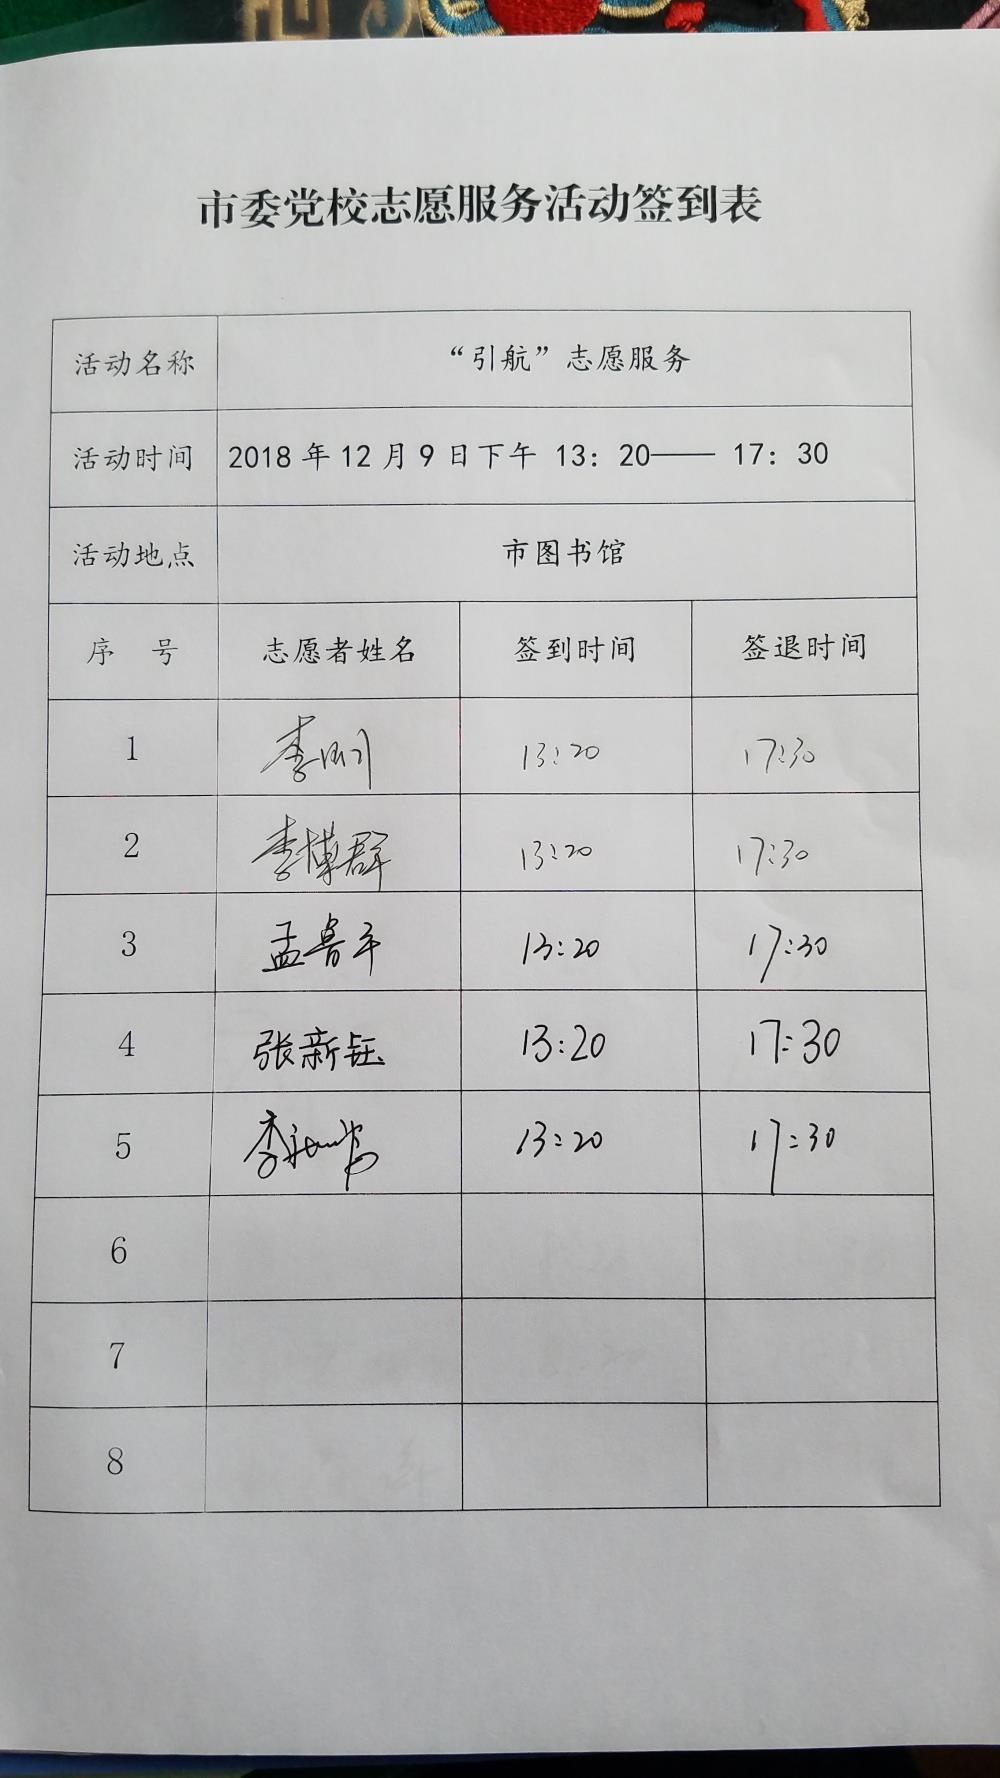 市委党校志愿服务活动签到表
活动名称 “引航”志愿服务
活动时间 2018年12月9日下午 13：20—— 17：30
活动地点 市图书馆
序 号 志愿者姓名 签到时间 签退时间
1 李刚 13:20 17:30
2 李博群 13:20 17:30
3 孟鲁平 13:20 17:30
4 张新钰 13:20 17:30
5 李 13:20 17:30
6
7
8